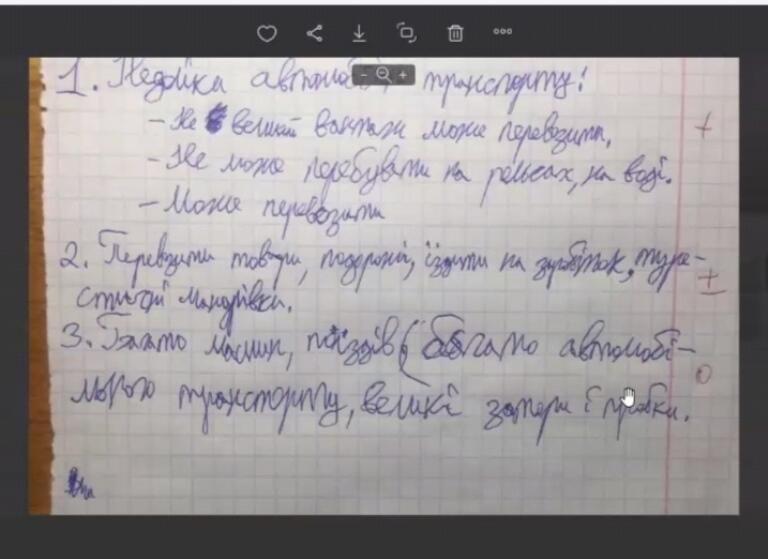 1. Недоліка автомобі транспорту:
- Не великий вантаж може перевозити,
- Не може перебувати на рельсах, на воді.
- Може перевозити
2. Перевозити товари, подорожі, їздити на заробіток, тури-
стичні мандрівки.
3. Багато машин, поїздів (багато автомобі-
льного транспорту, великі затори і пробки.